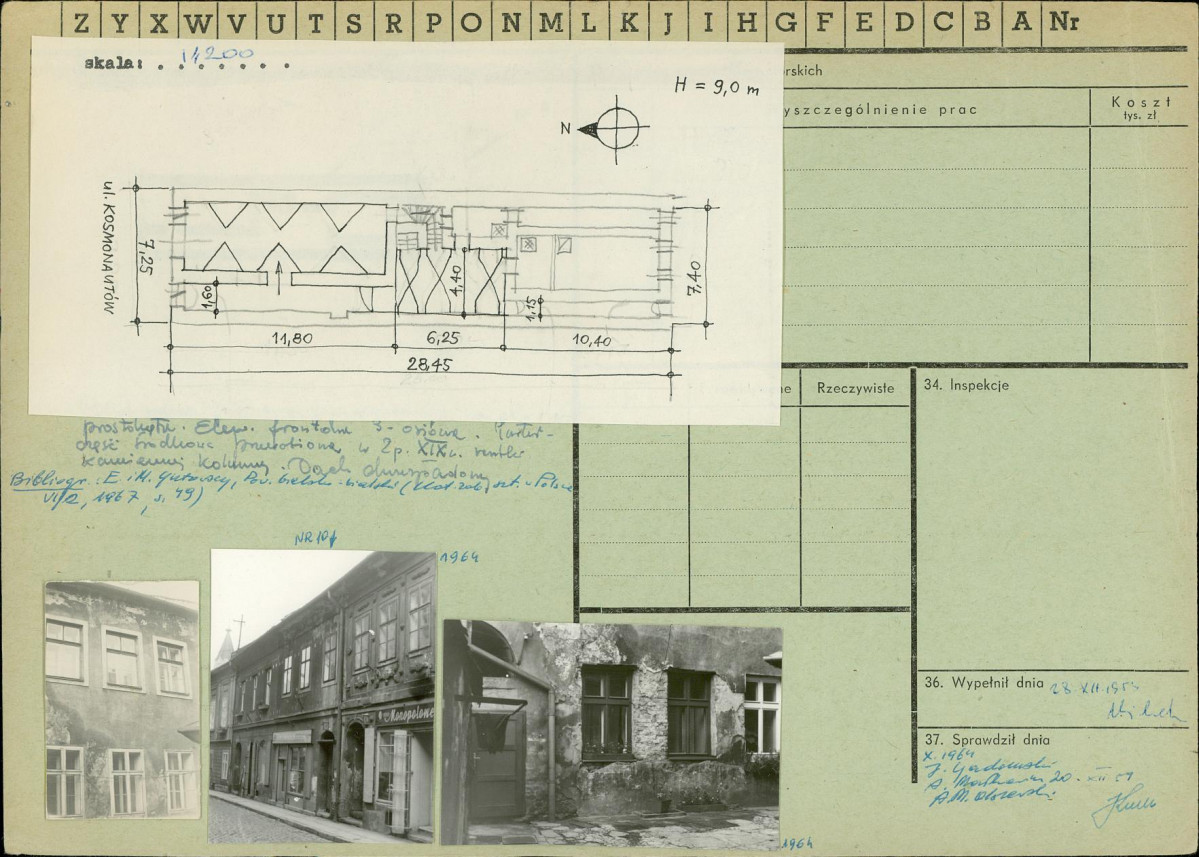 Z Y X W V U T S R P O N M L K J I H G F E D C B A Nr
skala: 1:200
H = 9,0 m
N
ul. KOSMONAUTÓW
7,25
1,60
4,40
1,15
7,40
11,80 6,25 10,40
28,45
rskich
yszczególnienie prac
Koszt
tys. zł
ne Rzeczywiste
34. Inspekcje
Elew. frontalna 3-osiowa. Parter-
część środkowa przerobiona w 2p. XIX w.
kamiennej kolumny. Dach dwuspadowy
Bibliogr.: E. i M. Gutowscy, Pow. bielsko-bialski (Kat. zab. szt. w Polsce
VI/2, 1967, s. 49)
NR 10
1964
Monopolowe
1964
36. Wypełnił dnia 28 XII
37. Sprawdził dnia
X. 1964
J. Gadomski
20 · XII 59